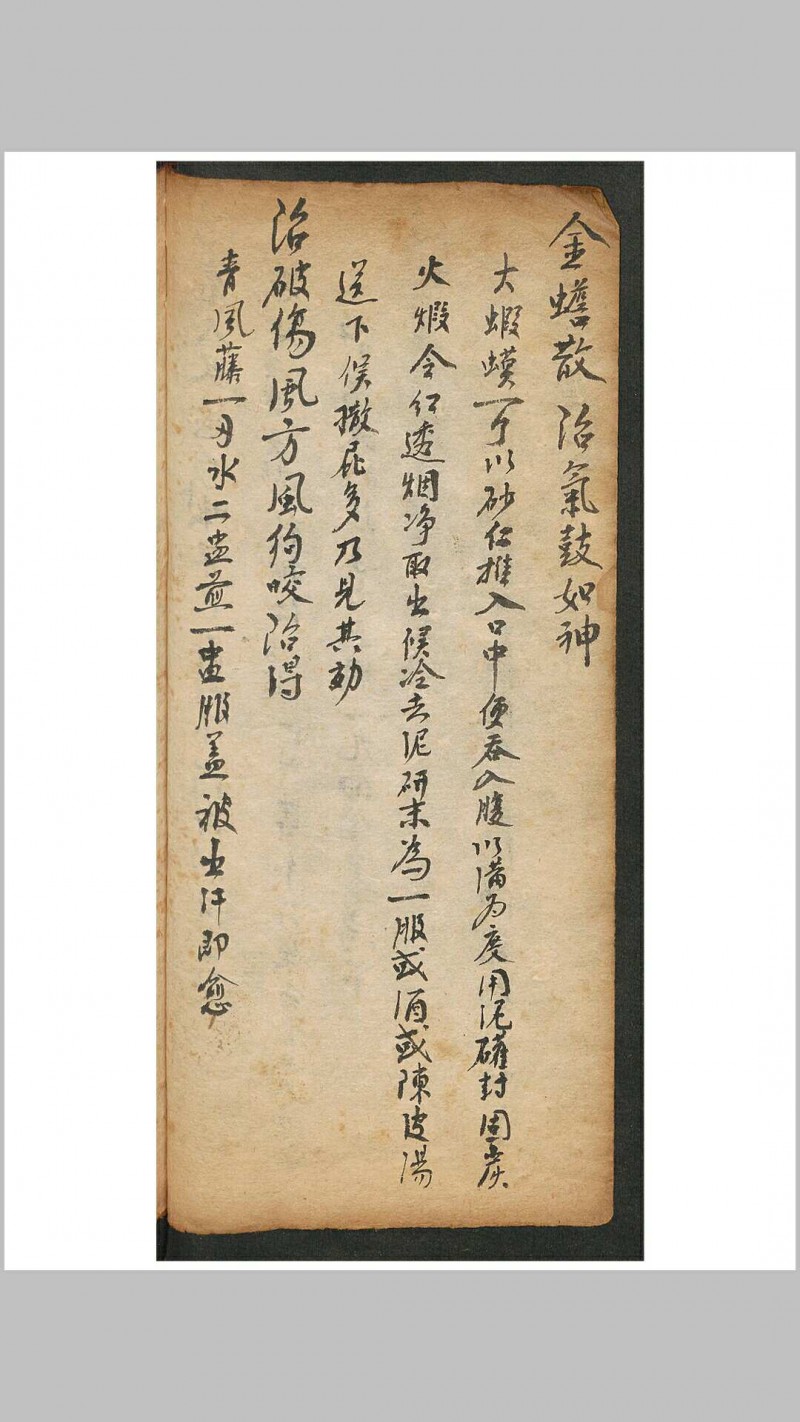 金蟾散 治氣鼓如神
大蝦蟆一个以砂仁推入口中便吞入腹以滿為度用泥礶封固炭
火煅令紅透烟净取出候冷去泥研末為一服或酒或陳皮湯
送下候撒屁多乃見其効
治破傷風方風狗咬治得
青風藤一刄水二盅煎一盅服盖被出汗即愈